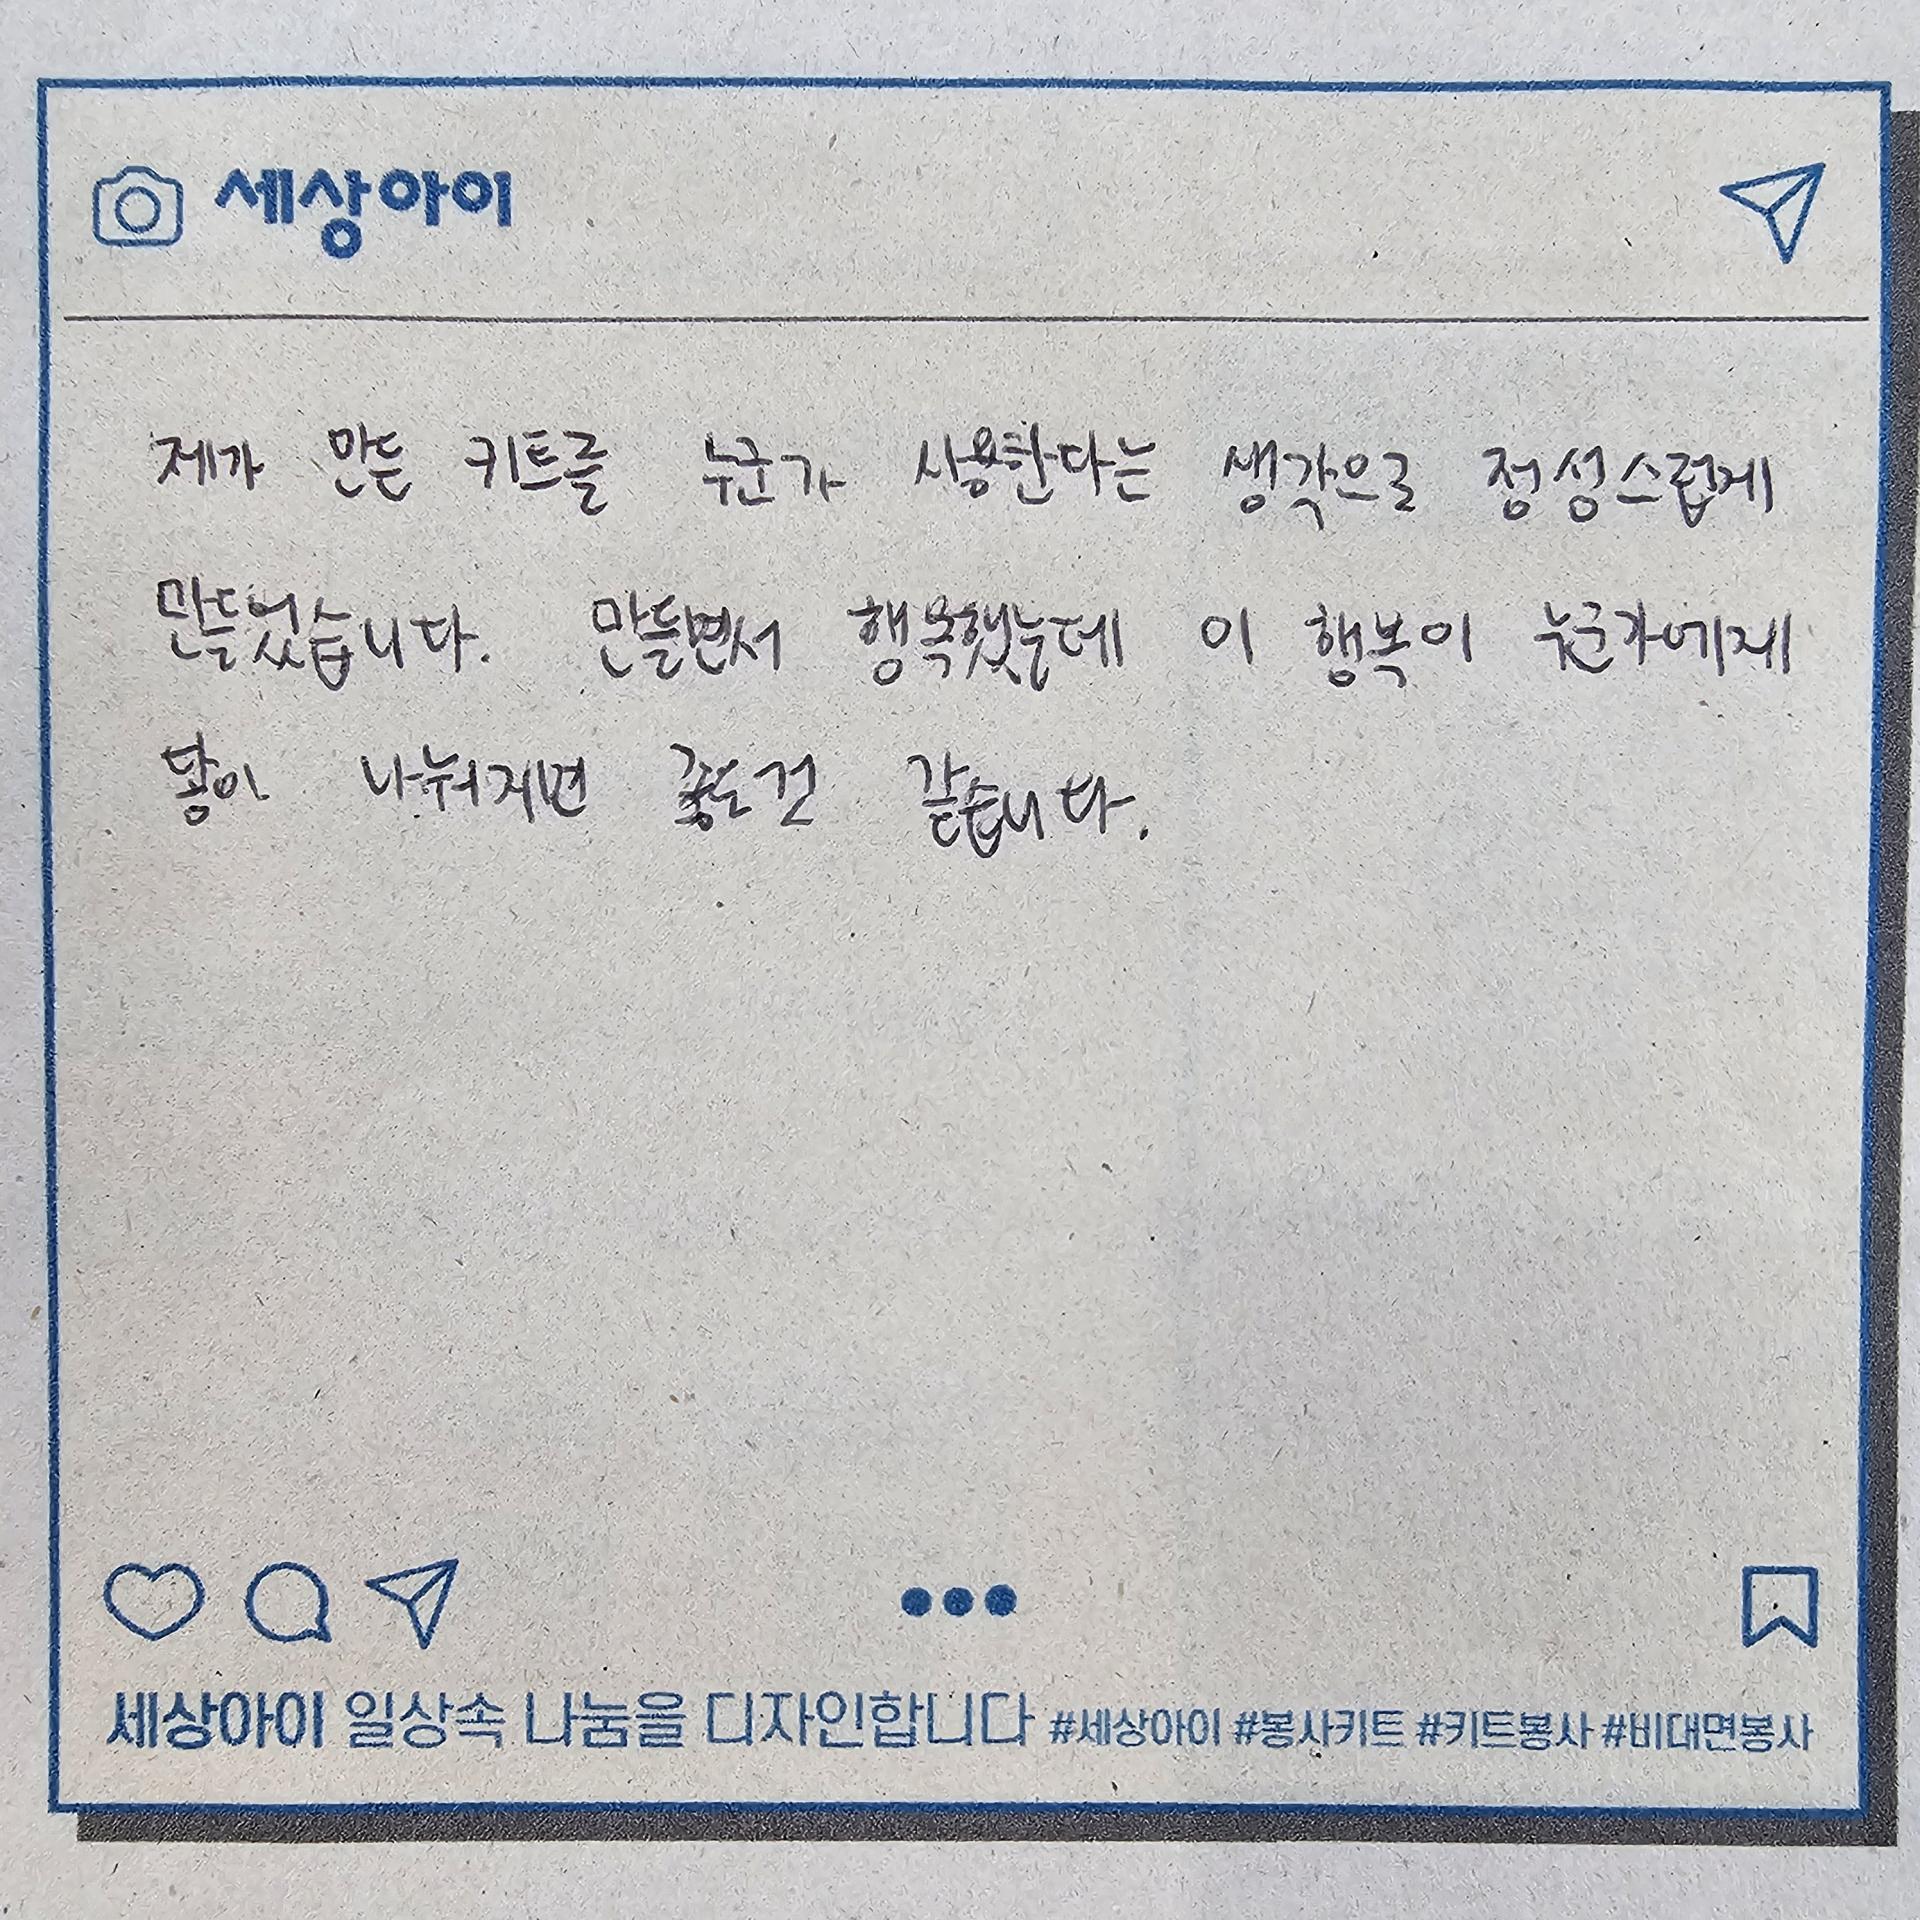 세상아이
제가 만든 키트를 누군가 사용한다는 생각으로 정성스럽게
만들었습니다. 만들면서 행복했는데 이 행복이 누군가에게
많이 나눠지면 좋을 것 같습니다.
세상아이 일상속 나눔을 디자인합니다 #세상아이 #봉사키트 #키트봉사 #비대면봉사